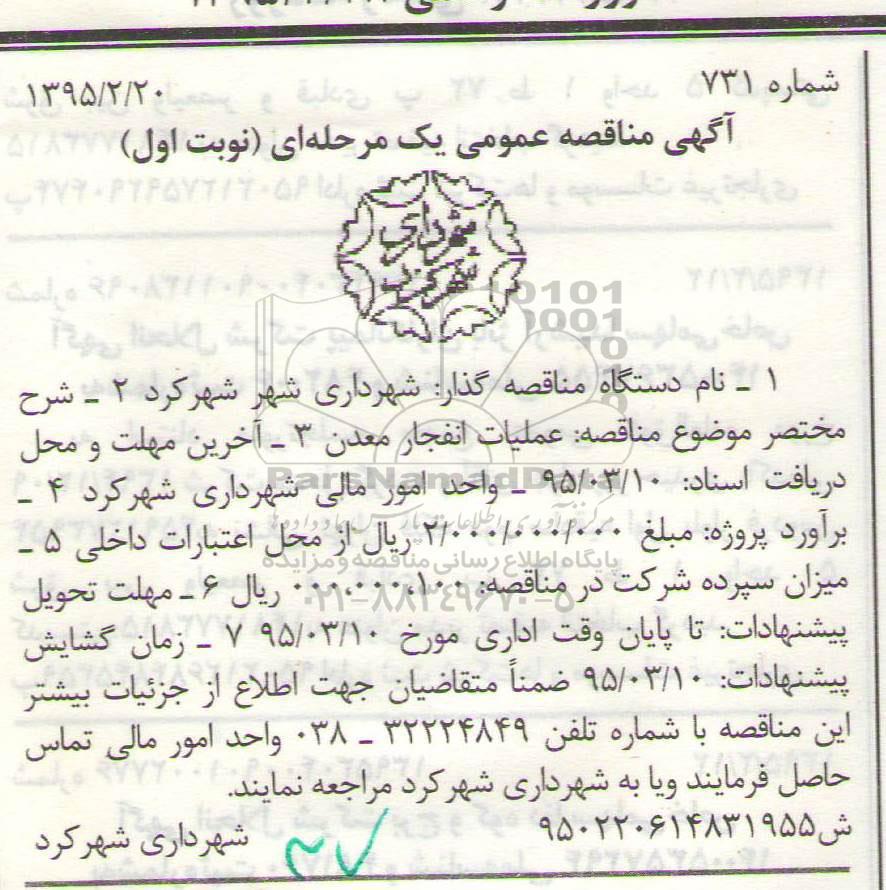 شماره ۷۳۱
۱۳۹۵/۲/۲۰
آگهی مناقصه عمومی یک مرحله‌ای (نوبت اول)
شهرداری
شهرکرد
۱ ـ نام دستگاه مناقصه گذار: شهرداری شهر شهرکرد ۲ ـ شرح
مختصر موضوع مناقصه: عملیات انفجار معدن ۳ ـ آخرین مهلت و محل
دریافت اسناد: ۹۵/۰۳/۱۰ ـ واحد امور مالی شهرداری شهرکرد ۴ ـ
برآورد پروژه: مبلغ ۲/۰۰۰/۰۰۰/۰۰۰ ریال از محل اعتبارات داخلی ۵ ـ
میزان سپرده شرکت در مناقصه: ۱۰۰,۰۰۰,۰۰۰ ریال ۶ ـ مهلت تحویل
پیشنهادات: تا پایان وقت اداری مورخ ۹۵/۰۳/۱۰ ۷ ـ زمان گشایش
پیشنهادات: ۹۵/۰۳/۱۰ ضمناً متقاضیان جهت اطلاع از جزئیات بیشتر
این مناقصه با شماره تلفن ۳۲۲۲۴۸۴۹ ـ ۰۳۸ واحد امور مالی تماس
حاصل فرمایند ویا به شهرداری شهرکرد مراجعه نمایند.
ش۹۵۰۲۲۰۶۱۴۸۳۱۹۵۵
شهرداری شهرکرد
ParsNamadData
پایگاه اطلاع رسانی مناقصه و مزایده
۰۲۱-۸۸۳۴۹۶۷۰-۵